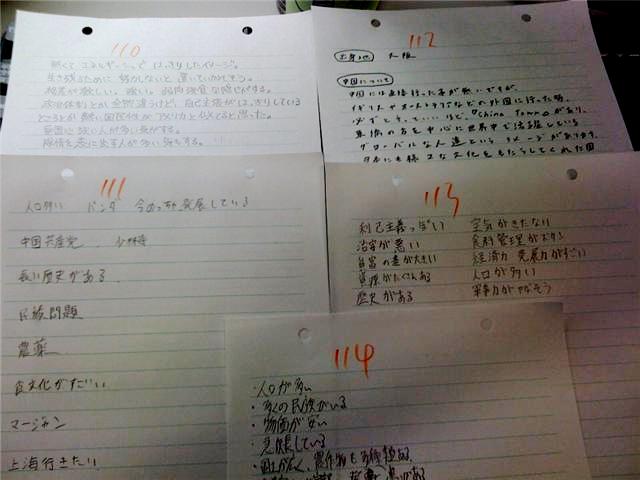 110
熱くてエネルギッシュではっきりしたイメージ。
生き残るために努力しないと置いていかれそう。
格差が激しい。強い。弱肉強食な感じがする。
政治体制とか全然違うけど、自己主張がはっきりしている
ところとか熱い国民性がアメリカと似てると思った。
意志が強い人が多い気がする。
112
出身地 大阪
中国について
中国には直接行った事が無いですが、
イギリスやオーストラリアなどの外国に行った時、
必ずと言っていいほど「China Town」があり、
華僑の方を中心に世界中で活躍している
グローバルな人達というイメージがあります。
日本にも様々な文化をもたらしてくれた国
111
人口多い パンダ 今めっちゃ発展している
中国共産党 少林寺
長い歴史がある
民族問題
農薬
食文化がすごい
マージャン
上海行きたい
113
利己主義っぽい 空気がきたない
治安が悪い 食料管理がズタン
貧富の差が大きい 経済力 発展力がすごい
資源がたくさんある 人口が多い
歴史がある 軍事力がヤバそう
114
・人口が多い
・多くの民族がいる
・物価が安い
・急成長している
・国土が広く、農作物も多種